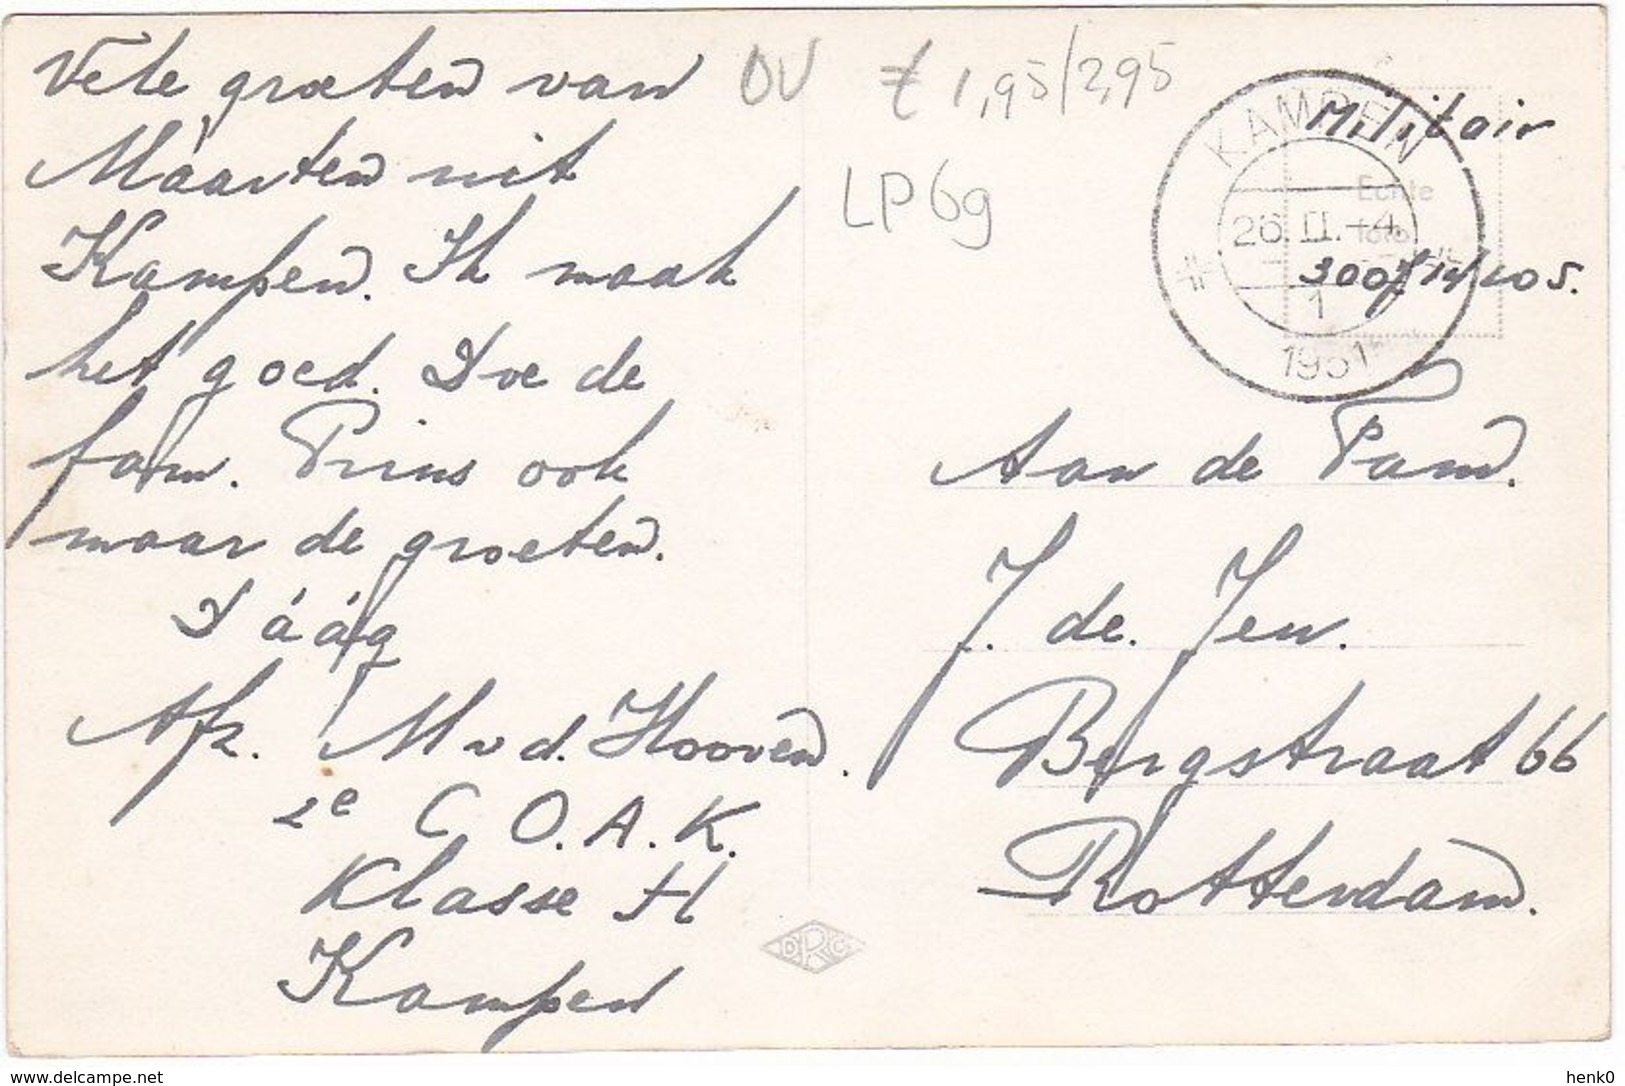 Vele groeten van
Maarten uit
Kampen. Ik maak
het goed. Doe de
fam. Prins ook
maar de groeten.
Dáág
Afz. M v d. Hooven.
2e C O.A.K.
Klasse H
Kampen
OV € 1,95/2,95
LP6g
KAMPEN
26.II.-4.
1
1951
Militair
Echte
foto
Aan de Fam.
J. de Jeu.
Bergstraat 66
Rotterdam.
DRC
www.delcampe.net
henk0